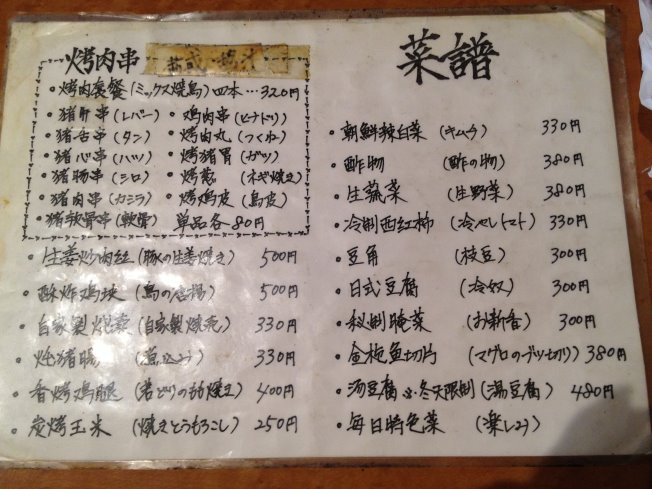 烤肉串
・烤肉套餐(ミックス焼鳥)四本…320円
・猪肝串(レバー) ・鸡肉串(ヒナドリ)
・猪舌串(タン) ・烤肉丸(つくね)
・猪心串(ハツ) ・烤猪胃(ガツ)
・猪肠串(シロ) ・烤葱(ネギ焼き)
・猪肉串(カシラ) ・烤鸡皮(鳥皮)
・猪软骨串(軟骨) 単品各80円
・生姜炒肉丝(豚の生姜焼き) 500円
・酥炸鸡块(鳥の唐揚) 500円
・自家製(自家製焼売) 330円
・炖猪肠(煮込み) 330円
・香烤鸡腿(若どりのもも焼き) 400円
・炭烤玉米(焼きとうもろこし) 250円
菜譜
・朝鮮辣白菜(キムチ) 330円
・酢物(酢の物) 380円
・生蔬菜(生野菜) 380円
・冷制西红柿(冷やしトマト) 330円
・豆角(枝豆) 300円
・日式豆腐(冷奴) 300円
・秘制腌菜(お新香) 300円
・金枪鱼切片(マグロのブツ切り) 380円
・汤豆腐 冬天限制(湯豆腐) 480円
・毎日特色菜(楽しみ)